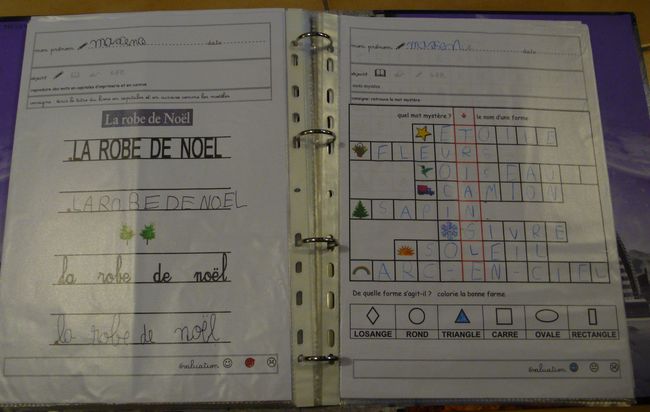 mon prénom date
objectif
reproduire des mots en capitales d'imprimerie et en cursive
consigne : écris le titre du livre en capitales et en cursive comme les modèles
La robe de Noël
LA ROBE DE NOEL
LA ROBE DE NOEL
la robe de noël
la robe de noël
évaluation
mon prénom date
objectif
mots mystère
consigne: retrouve le mot mystère
quel mot mystère ? le nom d'une forme
FLEURS
OISEAU
SAPIN
SOLEIL
ARC-EN-CIEL
De quelle forme s'agit-il ? colorie la bonne forme
LOSANGE ROND TRIANGLE CARRE OVALE RECTANGLE
évaluation